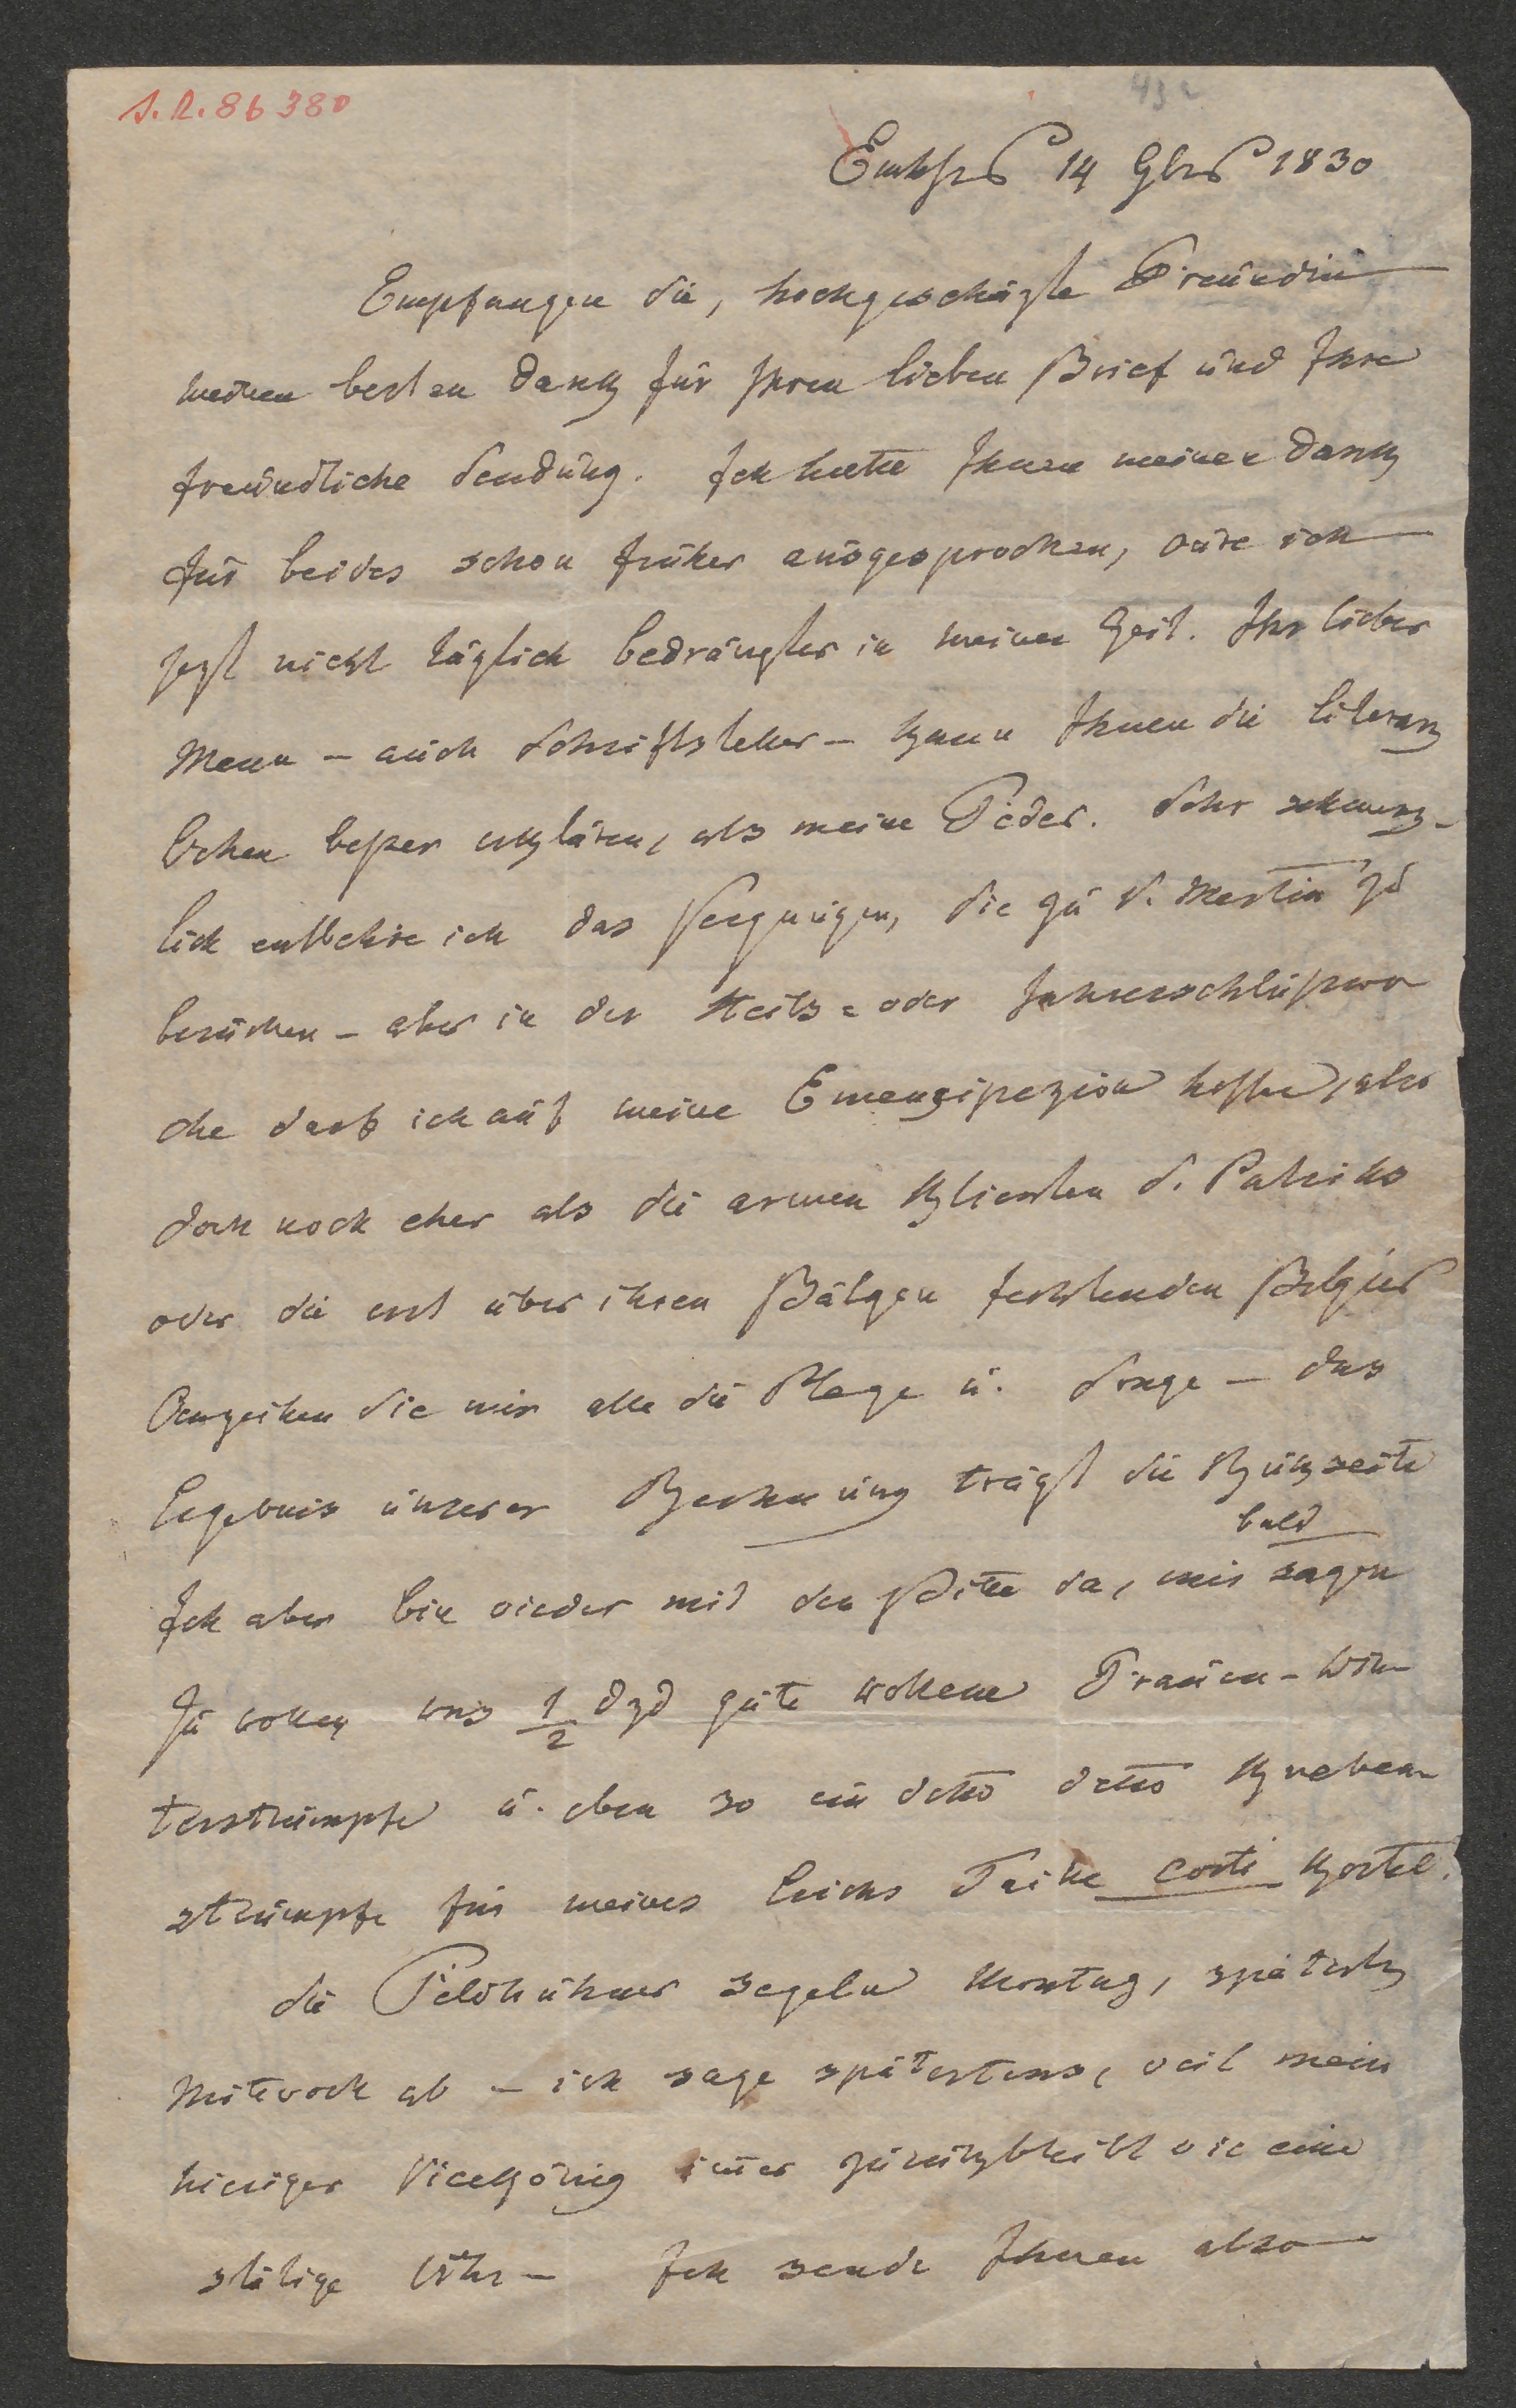 J. R. 86380
43
14 9brs 1830
Empfangen Sie, hochgeschäzte Freündin
meinen besten Dank für Ihren lieben Brief ünd Ihre
freündliche Sendüng. Ich hette Ihnen meinen Dank
für beides schon früher aüsgesprochen, väre ich
jezt nicht täglich bedrängter in meiner Zeit. Ihr lieber
Mann – aüch Schriftsteller – kann Ihnen die
beßer erklären, als meine Feder. Sehr schmerz-
lich entbehre ich das Vergnügen, Sie zü S. Martin zü
besüchen – aber in der oder Jahresschlüßwo
che darf ich aüf meine Emanzipazion hoffen, also
doch noch eher als die armen Klienten S. Patriks
oder die erst über ihren Bälgen Belgier
Verzeihen Sie mir alle die Plage ü. Sorge – das
Ergebnis ünserer Rechnüng trägt die Rükseite
Ich aber bin vieder mit der Bitte da, mir bald sagen
zü vollen was 1/2 Dzd güte vollene Fraüen-Win-
terstrümpfe ü. eben so ein detto detto Knaben-
strümpfe für meines Leichs Taike costi kostel.
die Feldhühner segeln Montag, spätestz
Mitevoch ab – ich sage spätestens, veil mein
hiesiger Vicekönig imer zürükbleibt vie eine
stätige Uhr – Ich sende Ihnen also